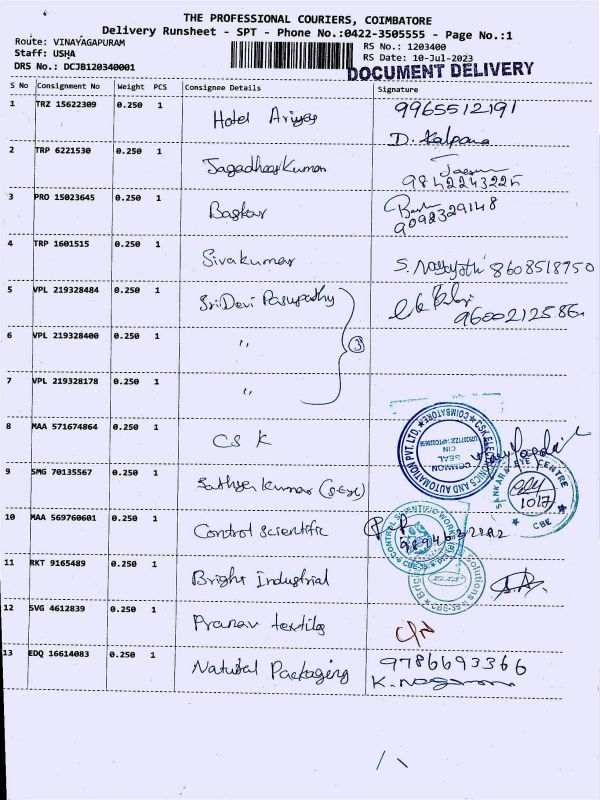 THE PROFESSIONAL COURIERS, COIMBATORE
Delivery Runsheet - SPT - Phone No.:0422-3505555 - Page No.:1
Route: VINAYAGAPURAM
Staff: USHA
DRS No.: DCJB120340001
RS No.: 1203400
RS Date: 10-Jul-2023
DOCUMENT DELIVERY
S No Consignment No Weight PCS Consignee Details Signature
1 TRZ 15622309 0.250 1 Hotel 9965512191
D. Kalpana
2 TRP 6221530 0.250 1 Jagadheeskumar
9842243225
3 PRO 15023645 0.250 1 Baskar
9092329148
4 TRP 1601515 0.250 1 Sivakumar S. 8608518750
5 VPL 219328484 0.250 1 SriDevi Pasupathy
9600212586
6 VPL 219328400 0.250 1 " 3
7 VPL 219328178 0.250 1 "
8 MAA 571674864 0.250 1 CSK
CSK ELECTRONICS AND AUTOMATION PVT. LTD. COIMBATORE
COMMON SEAL
9 SMG 70135567 0.250 1 Sathya Kumar
SANKARA EYE CENTRE
10/7
CBE
10 MAA 569760601 0.250 1 Control Scientific
CONTROL SCIENTIFIC WORKS
CBE-35
11 RKT 9165489 0.250 1 Bright Industrial
Solutions
CBE-35
12 SVG 4612839 0.250 1 Pranav textile
13 EDQ 16614083 0.250 1 Natural Packaging 9786693366